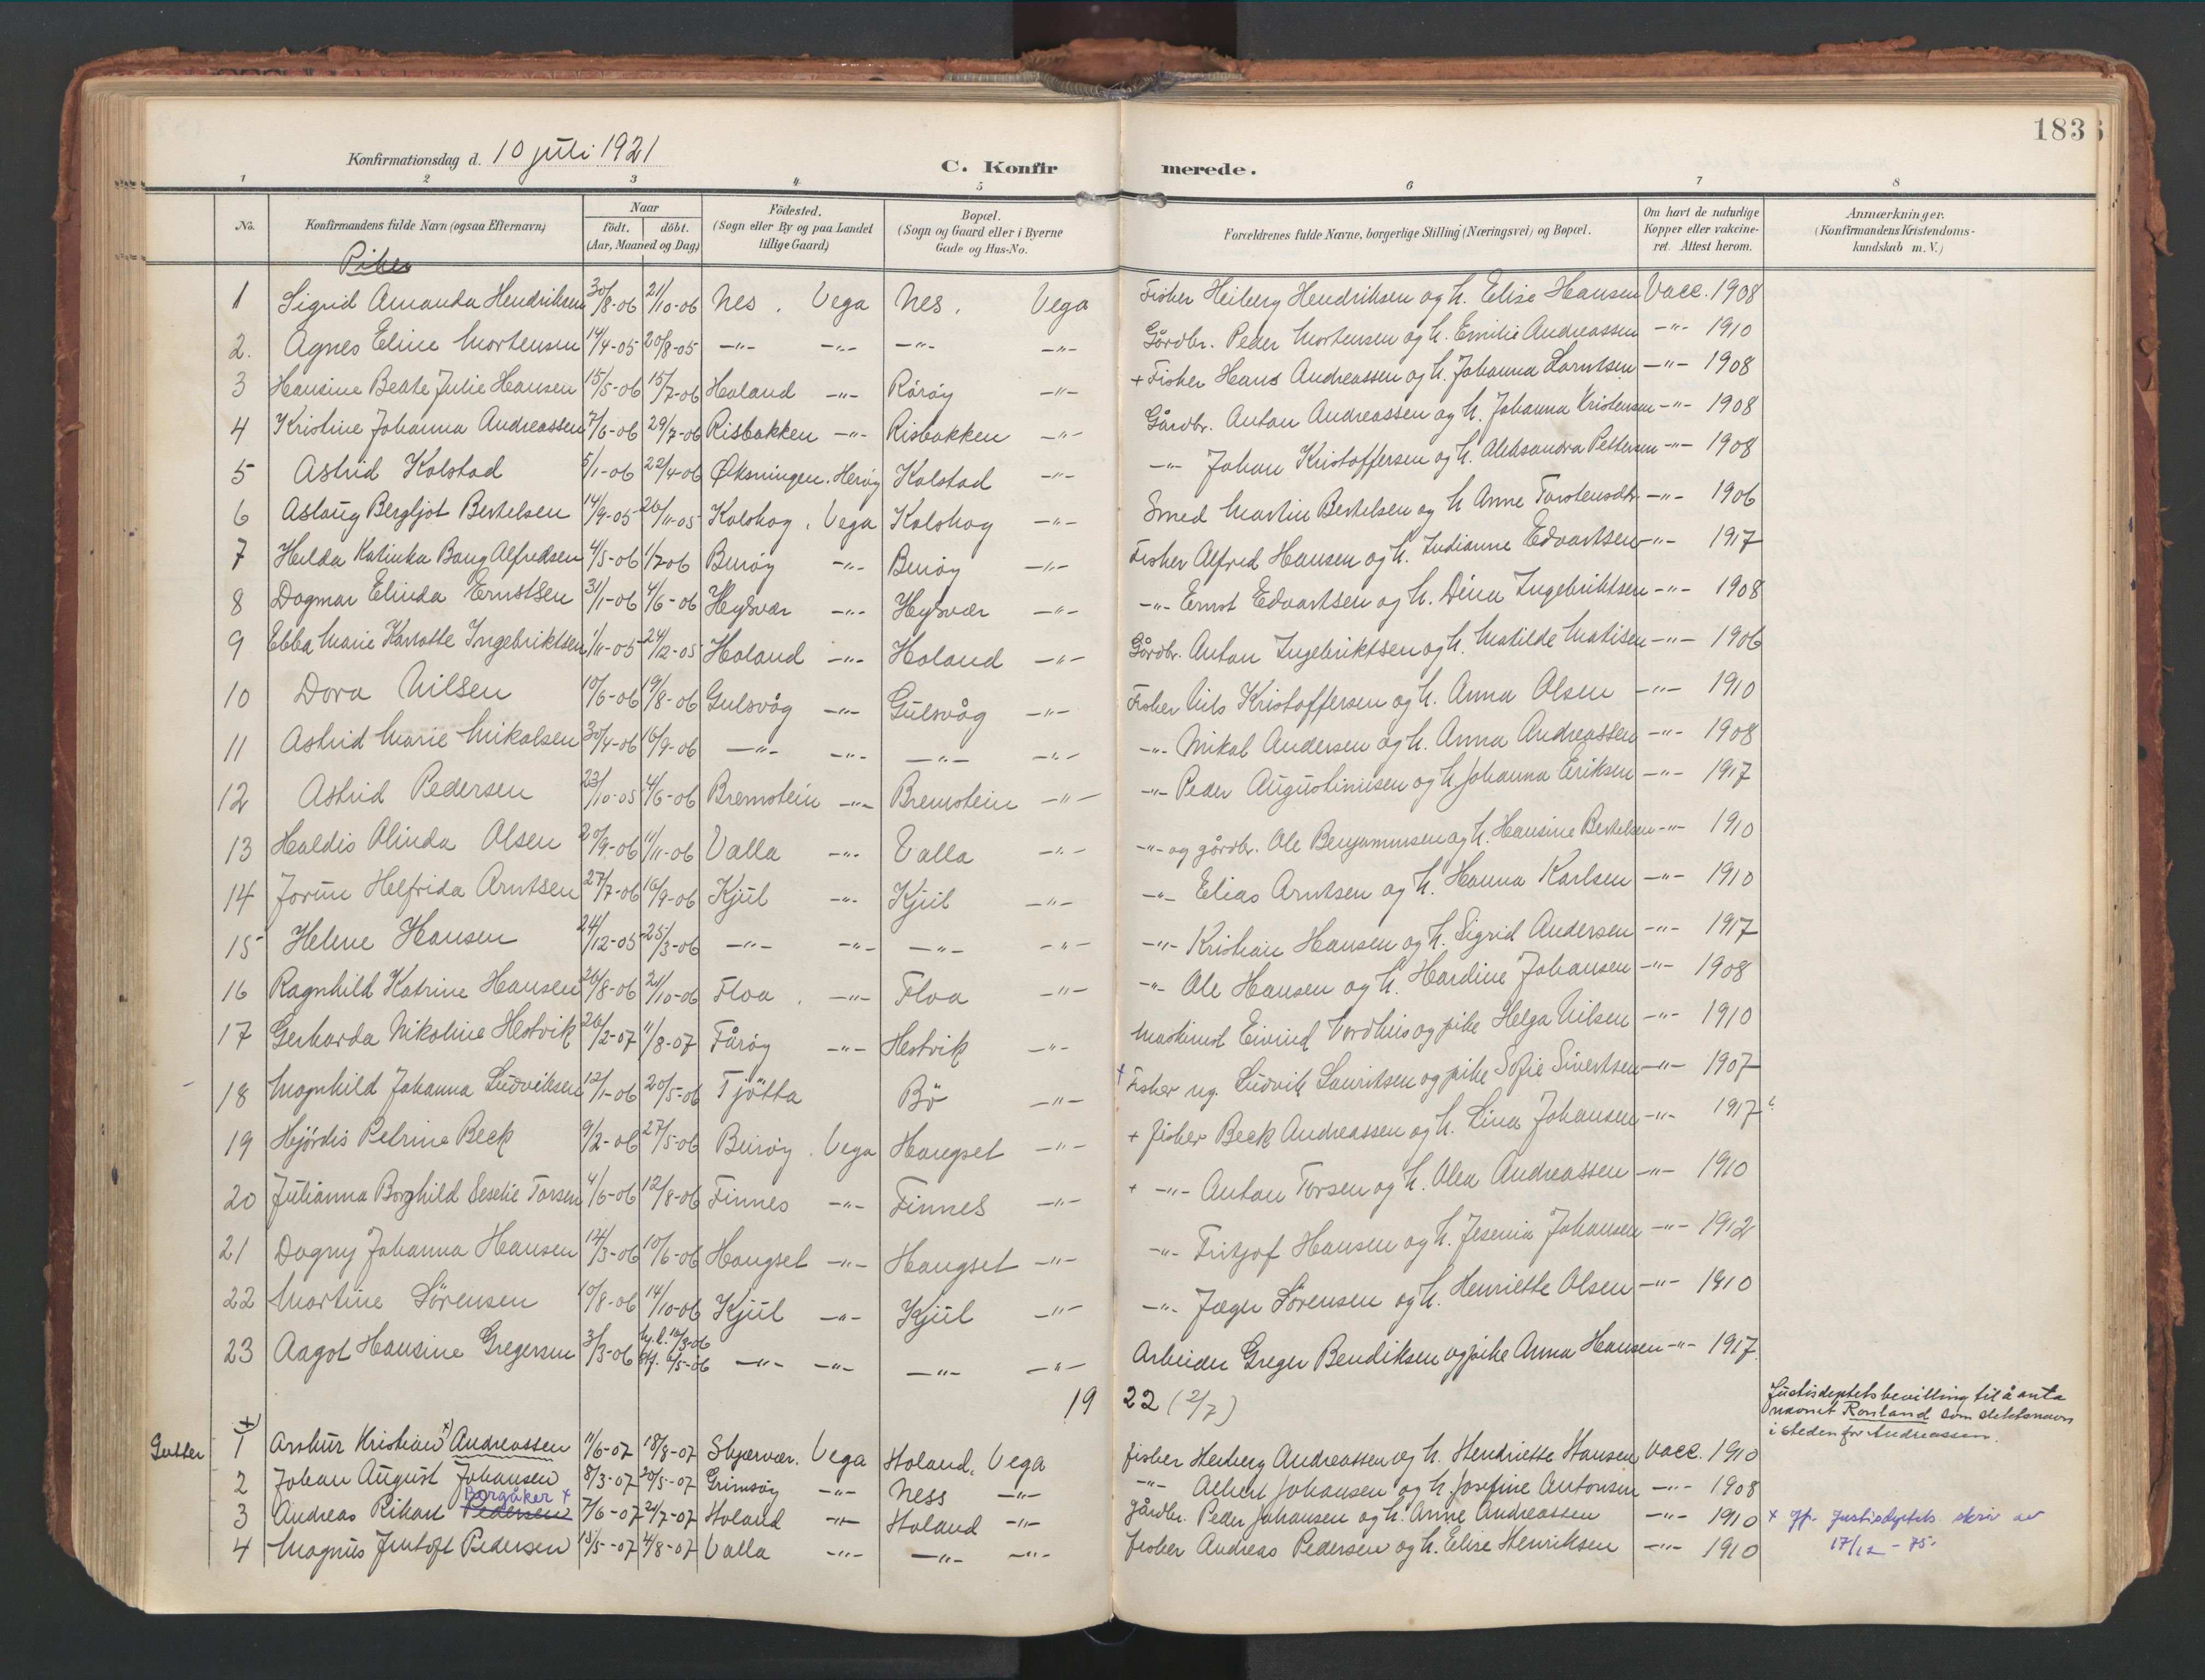 183
Konfirmationsdag d. 10 juli 1921
C. Konfirmerede.
1 2 3 4 5 6 7 8
No. Konfirmandens fulde Navn (ogsaa Efternavn) Naar födt. döbt. (Aar, Maaned og Dag) Födested. (Sogn eller By og paa Landet tillige Gaard) Bopæl. (Sogn og Gaard eller i Byerne Gade og Hus-No. Forældrenes fulde Navne, borgerlige Stilling (Næringsvei) og Bopæl. Om havt de naturlige Kopper eller vakcineret. Attest herom. Anmærkninger. (Konfirmandens Kristendomskundskab m. V.)
Piker
1 Sigrid Amanda Hendriksen 30/8-06 21/10-06 Nes. Vega Nes. Vega Fisker Heiberg Hendriksen og h. Elise Hansen Vacc. 1908
2. Agnes Eline Mortensen 14/4-05 20/8-05 -"- -"- -"- -"- Gårdbr. Peder Mortensen og h. Emilie Andreassen -"- 1910
3 Hansine Beate Julie Hansen 15/5-06 15/7-06 Holand -"- Rörøy -"- + Fisker Hans Andreassen og h. Johanna Larntsen -"- 1908
4 Kristine Johanna Andreassen 7/6-06 29/7-06 Risbakken -"- Risbakken -"- Gårdbr. Anton Andreassen og h. Johanna Kristensen -"- 1908
5 Astrid Kolstad 5/1-06 22/4-06 Øksningen. Herøy Kolstad -"- -"- Johan Kristoffersen og h. Aleksandra Pettersen -"- 1908
6 Aslaug Bergljot Bertelsen 14/9-05 26/11-05 Kolshog. Vega Kolshog -"- Smed Martin Bertelsen og h Anne Torstensdtr. -"- 1906
7 Helda Katinka Bang Alfredsen 4/5-06 1/7-06 Burøy -"- Burøy -"- Fisker Alfred Hansen og h. Indianne Edvartsen -"- 1917
8 Dagmar Elinda Ernstsen 31/1-06 4/6-06 Hysvær -"- Hysvær -"- -"- Ernst Edvartsen og h. Dina Ingebriktsen -"- 1908
9 Ebba Marie Karlotte Ingebriktsen 1/11-05 24/12-05 Holand -"- Holand -"- Gårdbr. Anton Ingebriktsen og h. Matilde Matisen -"- 1906
10 Dora Nilsen 10/6-06 19/8-06 Gulsvåg -"- Gulsvåg -"- Fisker Nils Kristoffersen og h. Anna Olsen -"- 1910
11 Astrid Marie Mikalsen 30/4-06 16/9-06 -"- -"- -"- -"- -"- Mikal Andersen og h. Anna Andreassen -"- 1908
12 Astrid Pedersen 23/10-05 4/6-06 Bremstein -"- Bremstein -"- -"- Peder Augustinusen og h Johanna Eriksen -"- 1917
13 Haldis Alinda Olsen 20/9-06 11/11-06 Valla -"- Valla -"- -"- og gårdbr. Ole Benjaminsen og h. Hansine Bertelsen -"- 1910
14 Jorun Helfrida Arntsen 27/7-06 16/9-06 Kjul -"- Kjul -"- -"- Elias Arntsen og h. Hanna Karlsen -"- 1910
15 Helene Hansen 24/12-05 25/3-06 -"- -"- -"- -"- -"- Kristian Hansen og h. Sigrid Andersen -"- 1917
16 Ragnhild Katrine Hansen 26/8-06 21/10-06 Floa. -"- Floa -"- -"- Ole Hansen og h. Hardine Johansen -"- 1908
17 Gerharda Nikoline Hestvik 26/2-07 11/8-07 Fårøy -"- Hestvik -"- Maskinist Eivind Nordhus og pike Helga Nilsen -"- 1910
18 Magnhild Johanna Ludviksen 12/1-06 20/5-06 Tjötta Bö -"- + Fisker ug. Ludvik Lauritsen og pike Sofie Sivertsen -"- 1907
19 Hjördis Petrine Beck 9/2-06 27/5-06 Burøy. Vega Hongset -"- + fisker Beck Andreassen og h. Lina Johansen -"- 1917
20 Julianna Borghild Seselie Torsen 4/6-06 12/8-06 Finnes -"- Finnes -"- + -"- Anton Torsen og h. Alea Andreassen -"- 1910
21 Dagny Johanna Hansen 14/3-06 10/6-06 Hongset -"- Hongset -"- -"- Fritjof Hansen og h. Jesenia Johansen -"- 1912
22 Martine Sörensen 10/8-06 14/10-06 Kjul -"- Kjul -"- -"- Jæger Sörensen og h. Henriette Olsen -"- 1910
23 Aagot Hansine Gregersen 3/3-06 hj.d. 10/3-06 stf. 6/5-06 -"- -"- -"- -"- Arbeider Greger Bendiksen og pike Anna Hansen -"- 1917
19 22 (2/7)
Justisdeptets bevilling til å anta navnet Ronland som slektsnavn i steden for Andreassen.
Gutter +) 1 Arthur Kristian +) Andreassen 11/6-07 18/8-07 Skjærvær. Vega Holand. Vega fisker Heiberg Andreassen og h. Hendriette Hansen Vacc. 1910
2 Johan August Johansen 8/3-07 20/5-07 Grimsöy -"- Ness -"- -"- Albert Johansen og h. Josefine Antonsen -"- 1908
Borgåker +
3 Andreas Rikart Pedersen 7/6-07 21/7-07 Holand -"- Holand -"- gårdbr. Peder Johansen og h. Anne Andreassen -"- 1910 + jfr. Justisdeptets skriv av 17/12-75.
4 Magnus Jentoft Pedersen 15/5-07 4/8-07 Valla -"- -"- -"- fisker Andreas Pedersen og h. Elise Henriksen -"- 1910